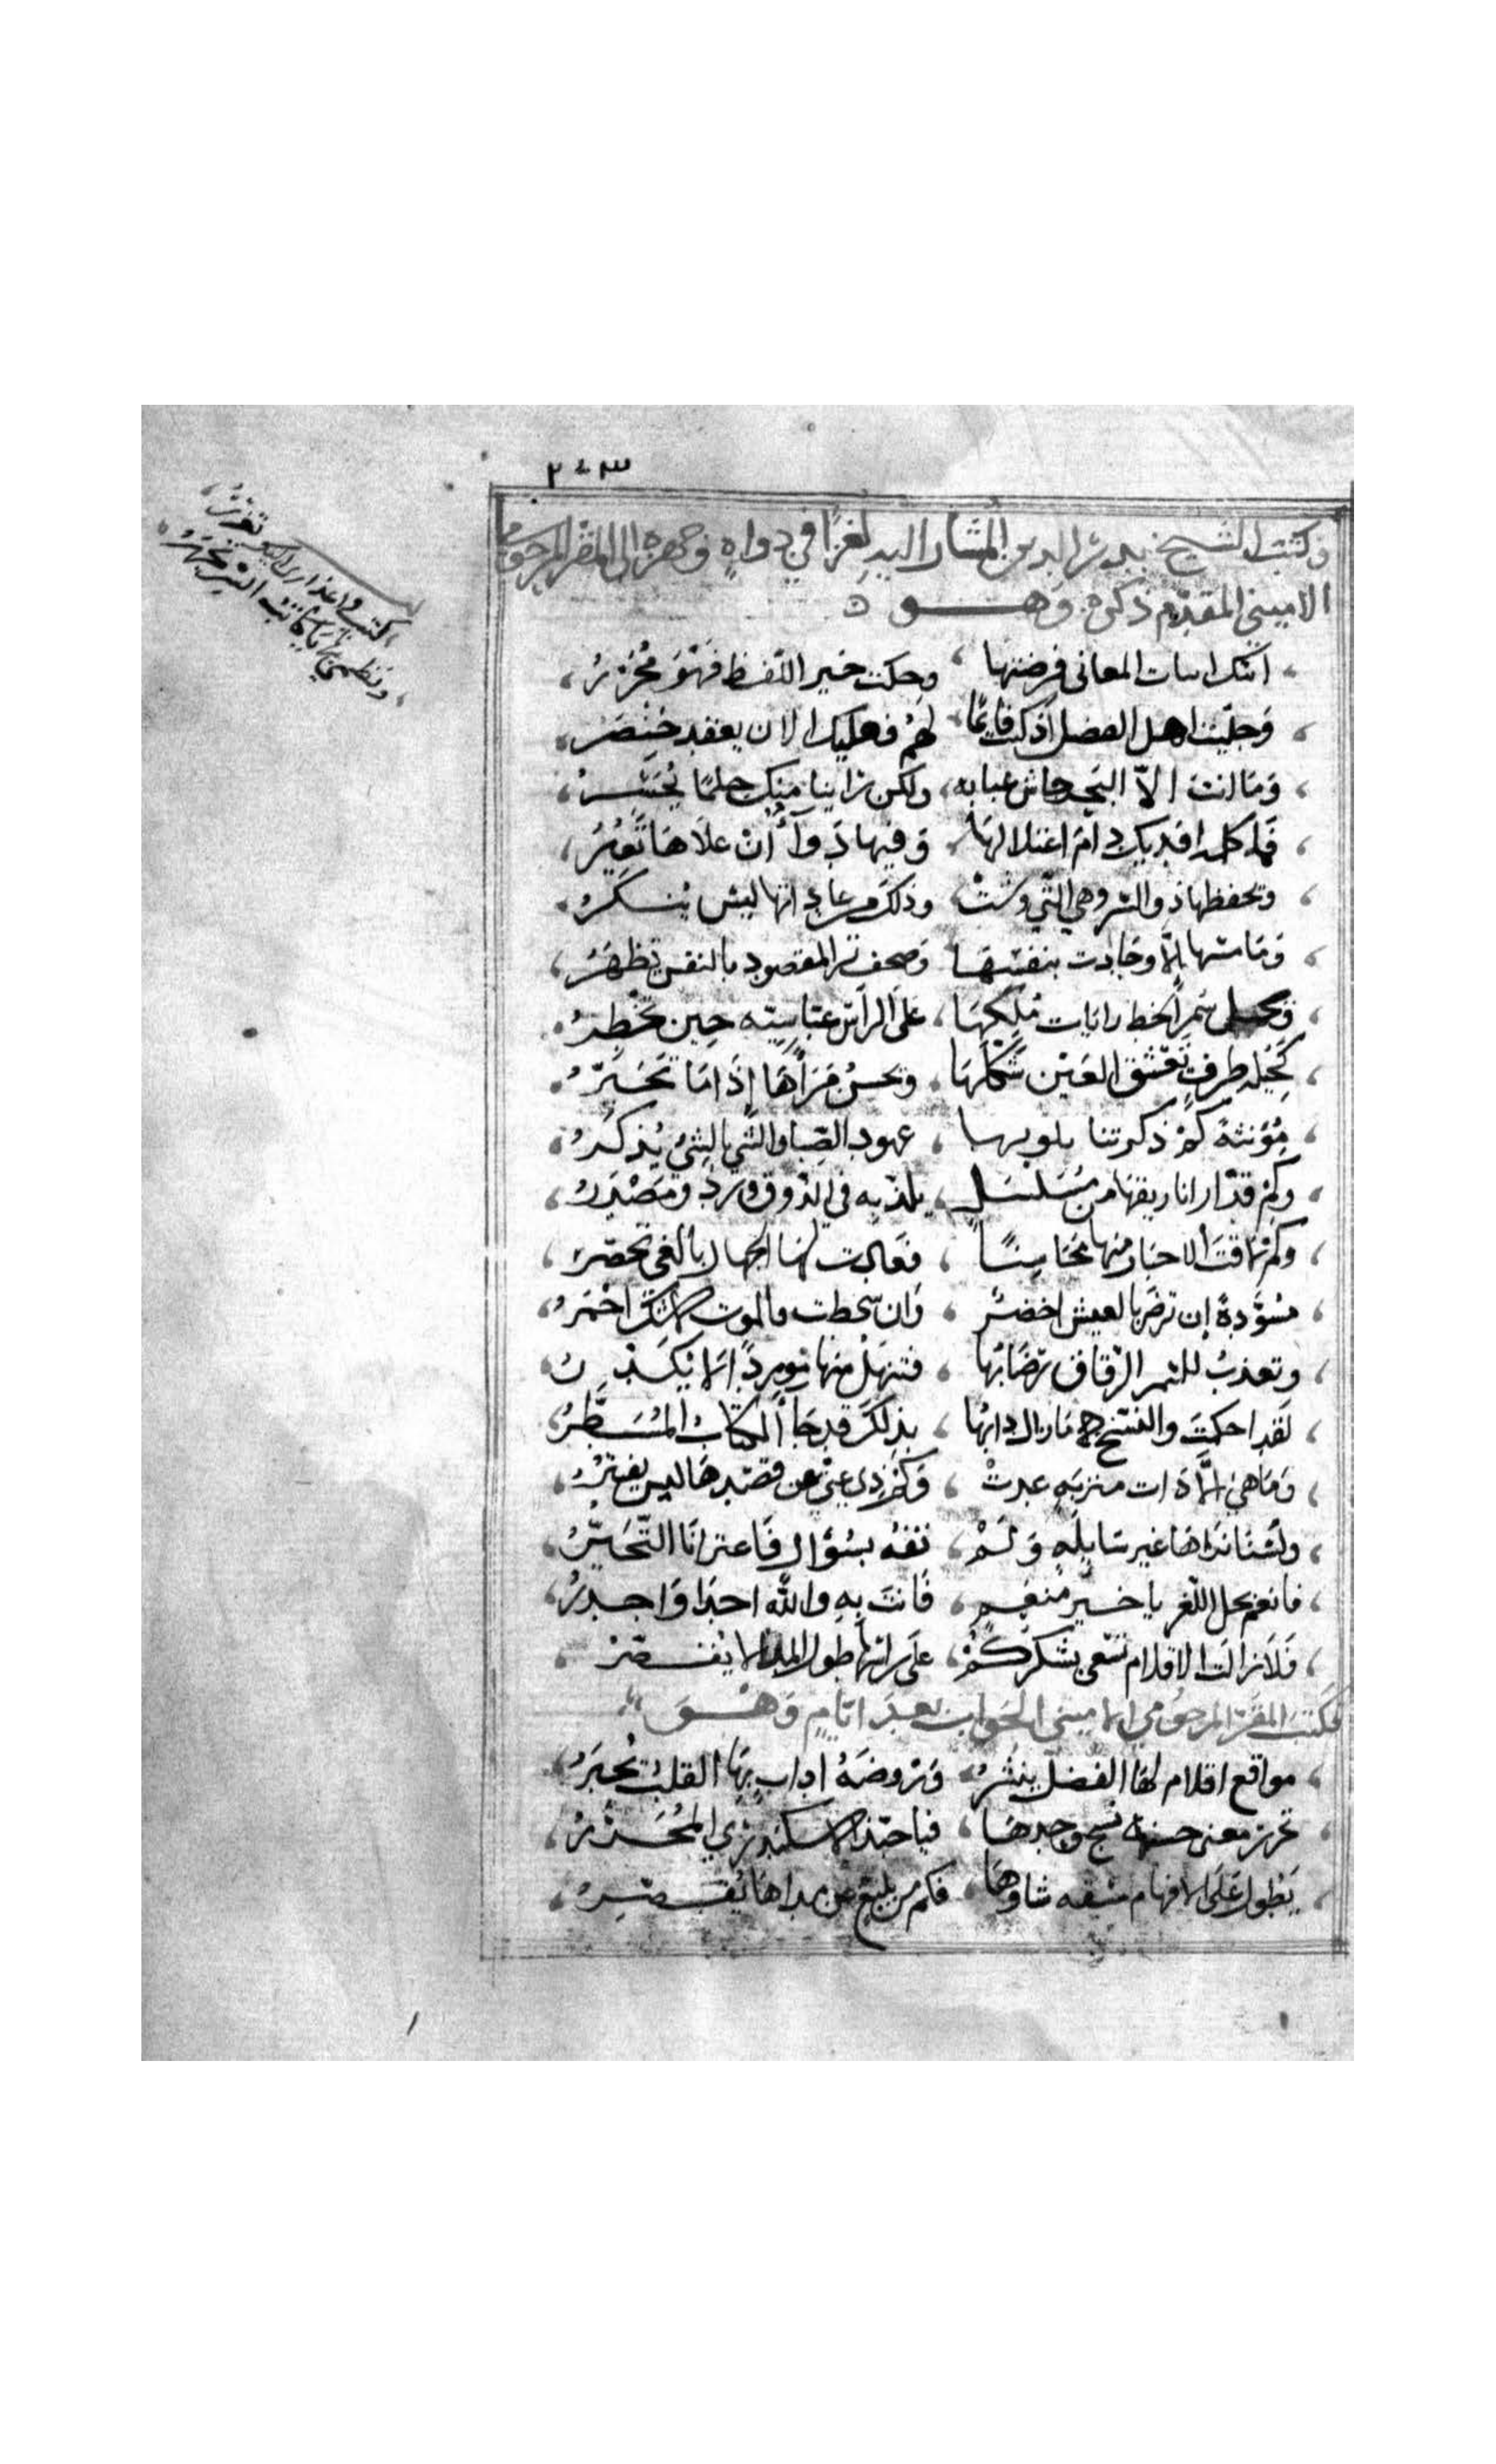 ٢٠٣
وكتب الشيخ بدر الدين المشار اليه لغزا في دواه وجهزه الى المقر المرحومي
الاميني المقدم ذكره وهو
المعاني فرضتها وحكت خير اللفظ فهو محرر
وحليت اهل الفضل اذ كنت لهم فعليك الان يعقد خنصر
وما انت الا البحر جاش عبابه ولكن راينا منك حلما يحسر
فما كلم افديك دام اعتلالها وفيها دوآ ان علاها تغير
وتحفظها ذو السر وهي التي وشت وذلك من عاداتها ليس ينكر
وما مسها الا وجادت بنفسها وصحف تر المقصود بالنفس يظهر
سمر الخط رايات ملكها على الراس عباسيته حين تخطر
كحيلة طرف تعشق العين شكلها وتحسن مرآها اذا ما تحبر
مؤنثة كم ذكرتنا عهود الصبا والشي بالشئ يذكر
وكم قد ارانا ريقها من مسلسل يلذ به في الذوق ورد ومصدر
وكم نمقت الاخبار منها محاسنا لها الجهال بالغي تحصر
مسودة ان ترض بالعيش اخضر وان سخطت فالموت احمر
وتعذب للسمر الرقاق رضابها فتنهل منها موردا لا يكدر
لقد احكمت والنسخ ما زال دابها بذلك قد جآ الكتاب المسطر
وما هي الا ذات متربه عدت وكم ذي غنى عن قصدها ليس يفتر
ولسنا نراها غير سايلة ولم تفه بسؤال فاعترانا التحير
فانعم بحل اللغز يا خير منعم فانت به والله احرا واجدر
فلا زالت الاقلام تسعى بشكركم على راسها طول المدا لا يقصر
فكتب المقر المرحومي الاميني الجواب بعد ايام وهو
مواقع اقلام لها الفضل ينشر وروضة اداب بها القلب يحبر
تحرز معنى نسج وحدها فيا حبذا الاسكندري المحرر
يطول على الافهام شاوها فكم من بليغ عن مداها يقصر